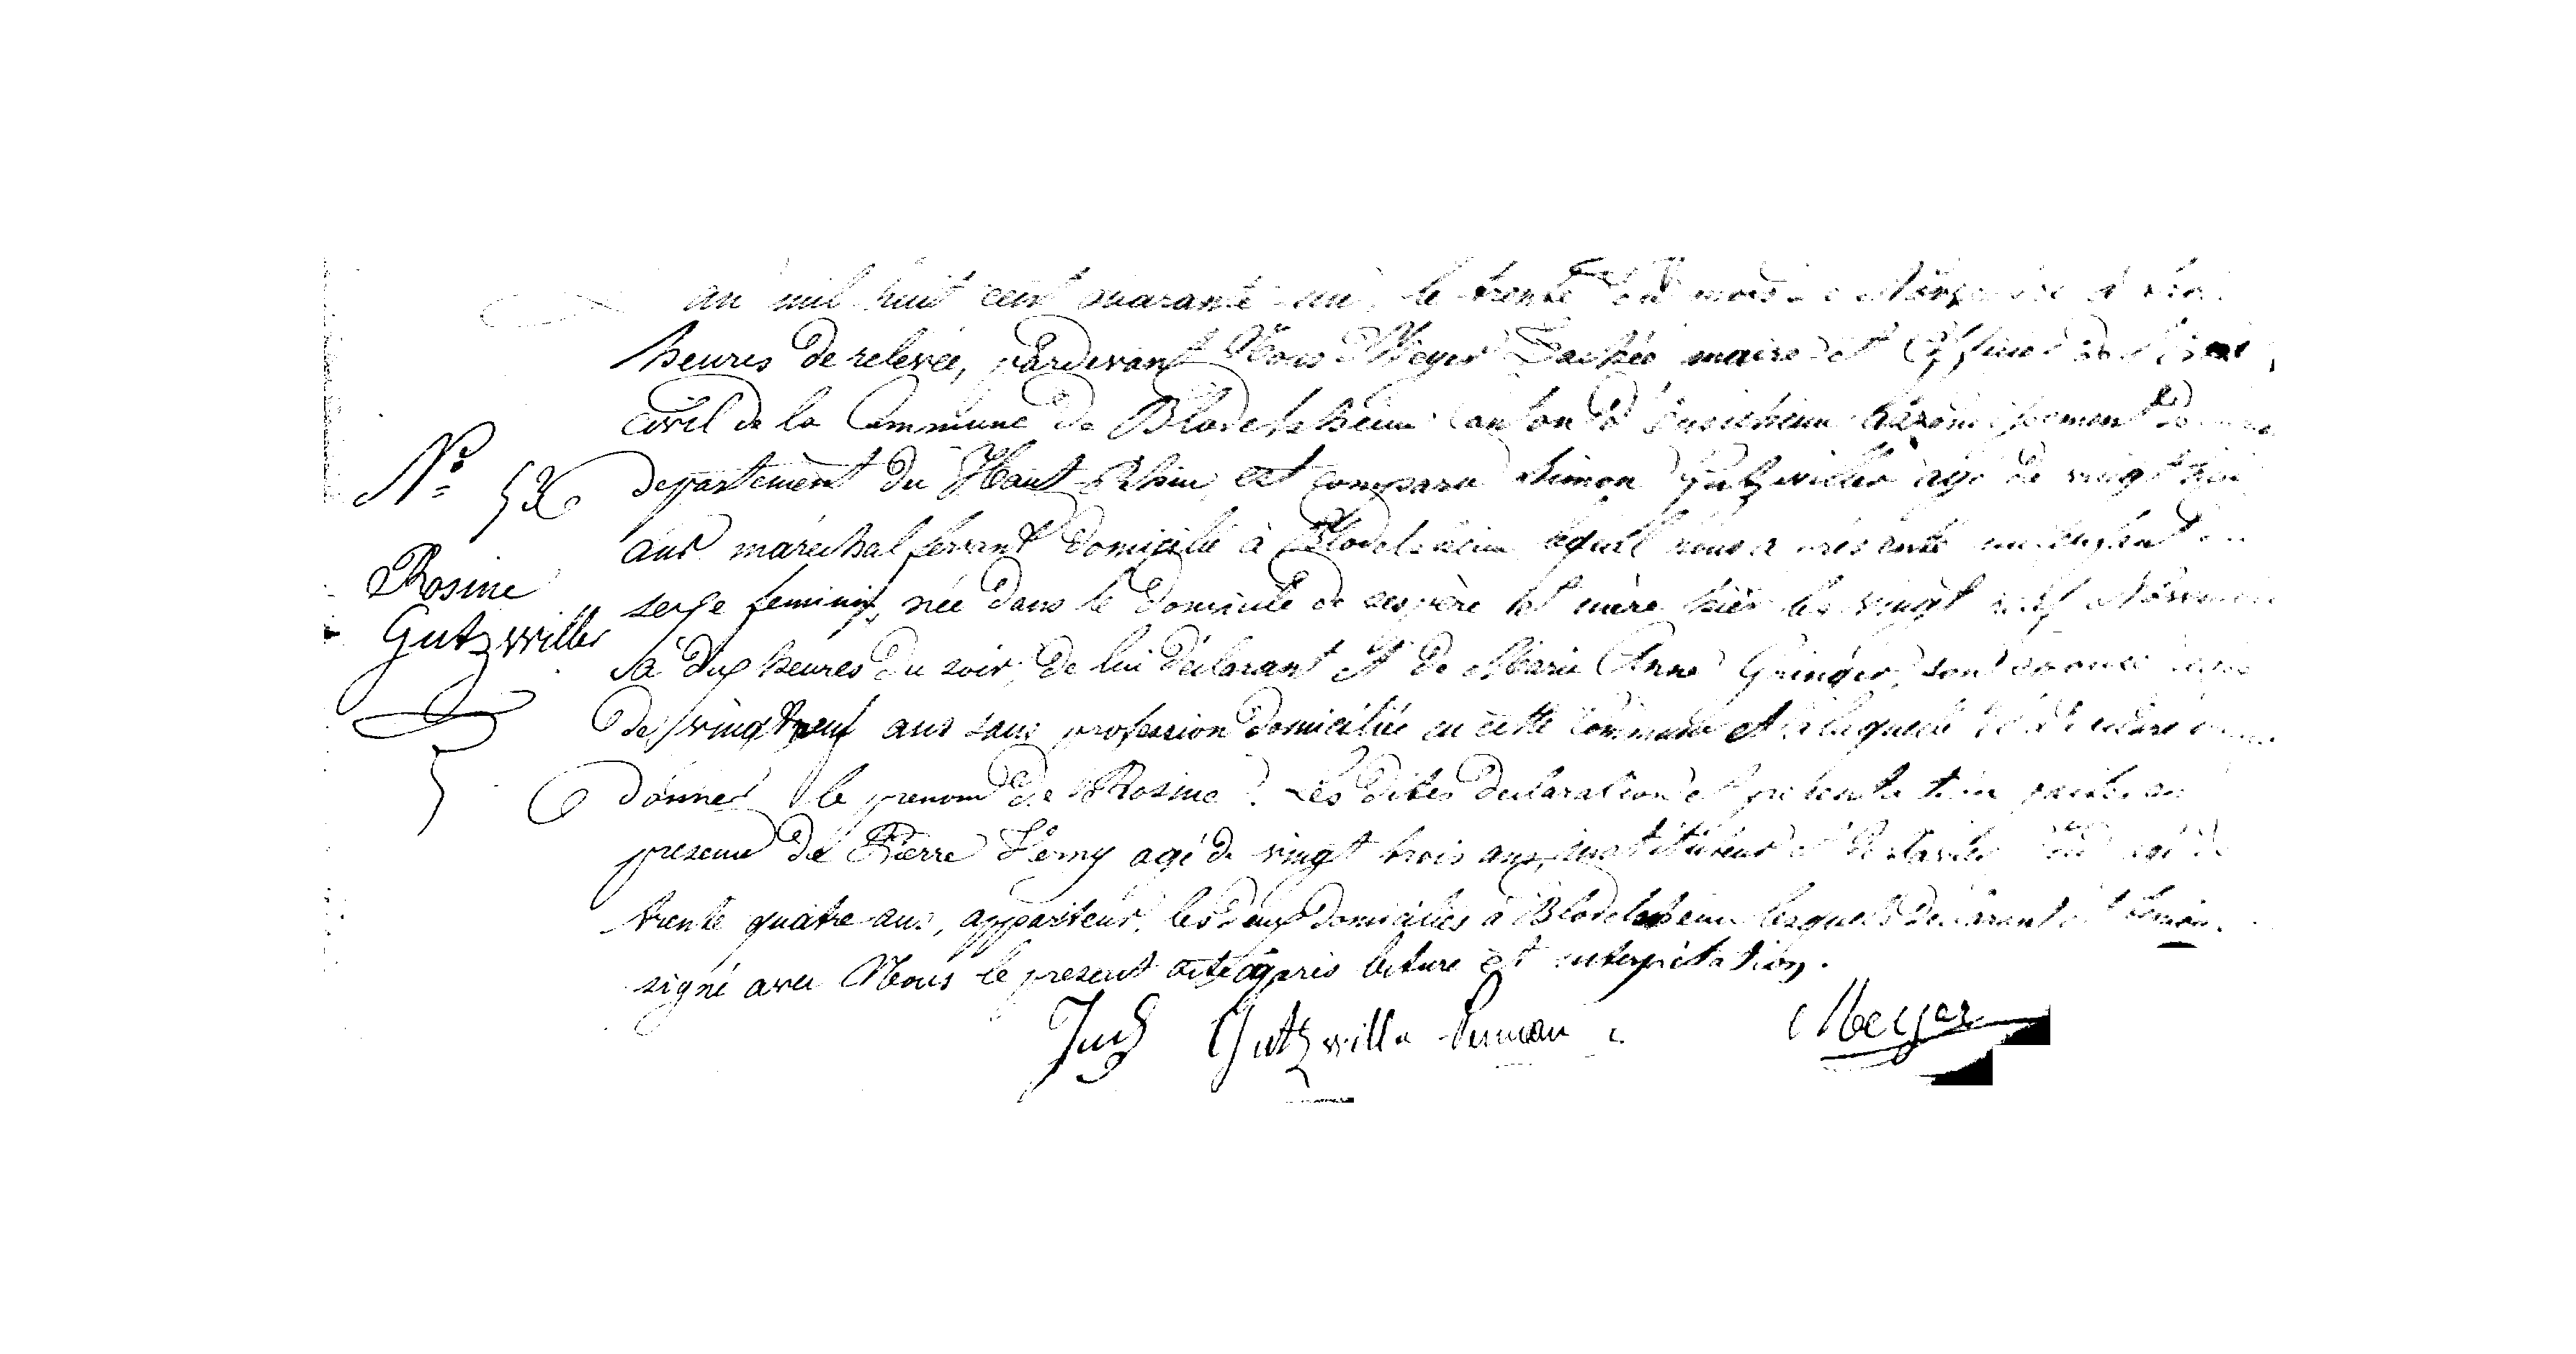 an mil huit cent quarante un, le trente du mois de Novembre à
heures de relevée, pardevant Nous Meyer maire et Officier de l'état
civil de la Commune de Blodelsheim canton d'Ensisheim
N° 52 departement du Haut Rhin, est comparu Simon Gutzwiller agé de vingt
ans maréchal ferrant domicilié à Blodelsheim lequel nous a présenté un enfant du
Rosine
sexe feminin, née dans le domicile de ses père et mère hier le vingt neuf Novembre
Gutzwiller
à dix heures du soir, de lui déclarant et de Marie Anne son épouse
de vingt neuf ans sans profession domiciliée en cette commune et à laquelle il a déclaré
donner le prenom de Rosine. Les dites declaration et présentation faites en
presence de Pierre agé de vingt trois ans, instituteur et
trente quatre ans, appariteur, les deux domiciliés à Blodelsheim lesquels déclarant et témoins
signé avec Nous le present acte après lecture et interprétation.
Gutzwiller Simon Meyer